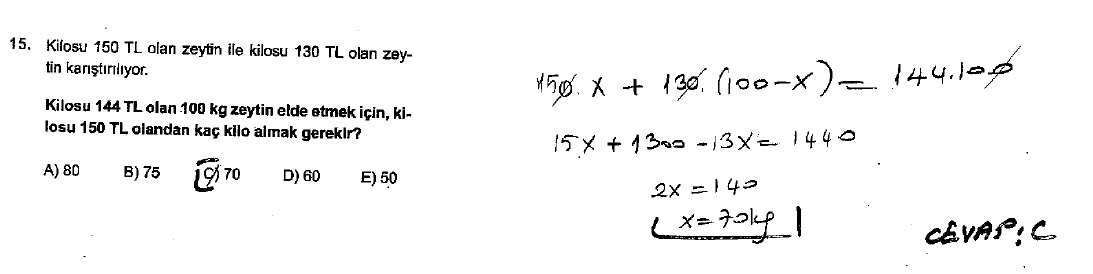 15. Kilosu 150 TL olan zeytin ile kilosu 130 TL olan zey-
tin karıştırılıyor.
Kilosu 144 TL olan 100 kg zeytin elde etmek için, ki-
losu 150 TL olandan kaç kilo almak gerekir?
A) 80 B) 75 C) 70 D) 60 E) 50
150. x + 130. (100-x) = 144.100
15x + 1300 - 13x = 1440
2x = 140
x = 70kg
CEVAP: C